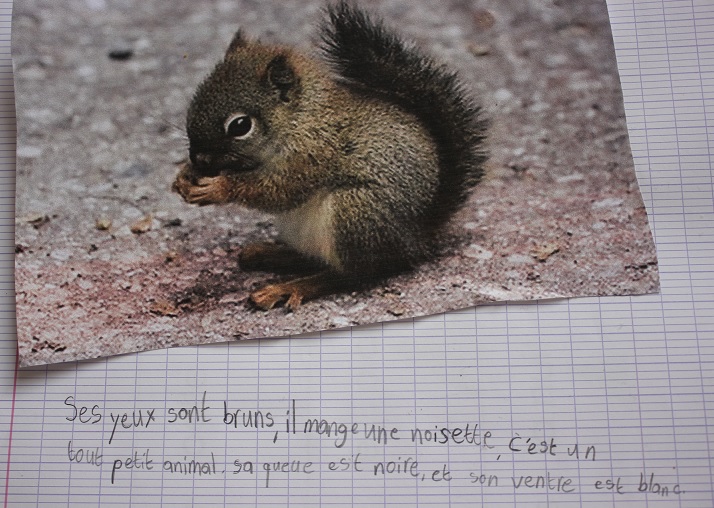 Ses yeux sont bruns, il mange une noisette, c'est un
tout petit animal. sa queue est noire, et son ventre est blanc.